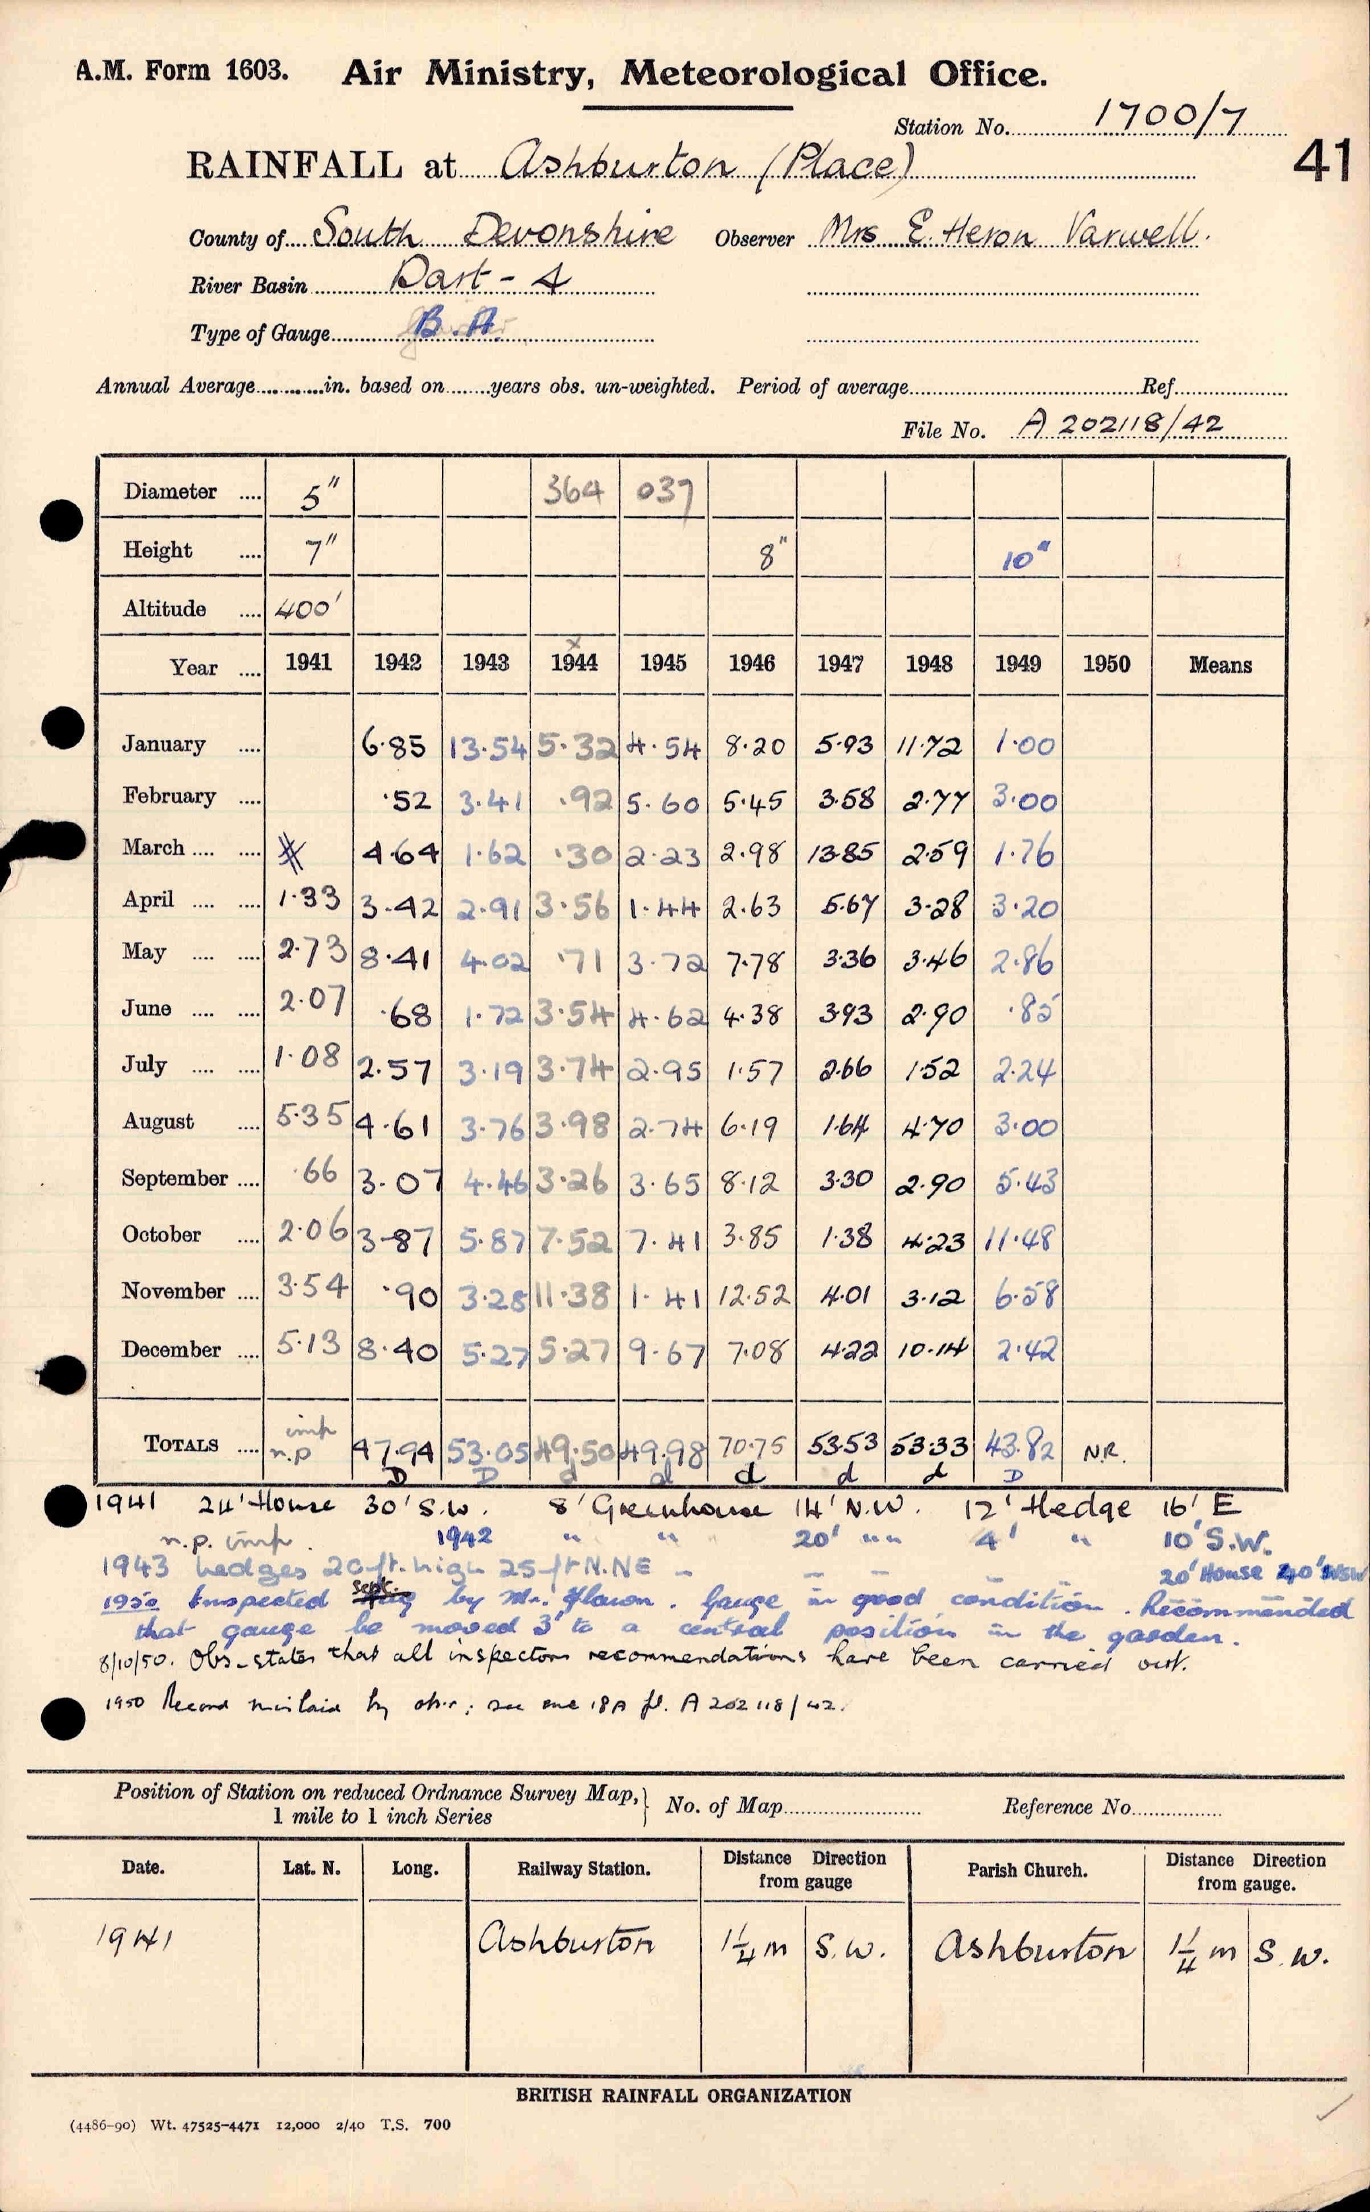 A.M. Form 1603. Air Ministry, Meteorological Office.
Station No. 1700/7
41
RAINFALL at Ashburton (Place)
County of South Devonshire Observer Mrs E. Heron Varwell.
River Basin Dart - 4
Type of Gauge B.A.
Annual Average in. based on years obs. un-weighted. Period of average Ref
File No. A 202118/42
Diameter .... 5" 364 037
Height .... 7" 8" 10"
Altitude .... 400'
x
Year .... 1941 1942 1943 1944 1945 1946 1947 1948 1949 1950 Means
January .... 6.85 13.54 5.32 4.54 8.20 5.93 11.72 1.00
February .... .52 3.41 .92 5.60 5.45 3.58 2.77 3.00
March .... .... 4.64 1.62 .30 2.23 2.98 13.85 2.59 1.76
April .... .... 1.33 3.42 2.91 3.56 1.44 2.63 5.67 3.28 3.20
May .... .... 2.73 8.41 4.02 .71 3.72 7.78 3.36 3.46 2.86
June .... .... 2.07 .68 1.72 3.54 4.62 4.38 3.93 2.90 .85
July .... .... 1.08 2.57 3.19 3.74 2.95 1.57 2.66 1.52 2.24
August .... 5.35 4.61 3.76 3.98 2.74 6.19 1.64 4.70 3.00
September .... .66 3.07 4.46 3.26 3.65 8.12 3.30 2.90 5.43
October .... 2.06 3.87 5.87 7.52 7.41 3.85 1.38 4.23 11.48
November .... 3.54 .90 3.28 11.38 1.41 12.52 4.01 3.12 6.58
December .... 5.13 8.40 5.27 5.27 9.67 7.08 4.22 10.14 2.42
TOTALS .... imp n.p 47.94 53.05 49.50 49.98 70.75 53.53 53.33 43.82 N.R.
D D d d d d d D
1941 24' House 30' S.W. 8' Greenhouse 14' N.W. 12' Hedge 16' E
n.p. imp. 1942 " " 20' " " 4' " 10' S.W.
1943 hedges 20ft. high 25ft N.NE - - - - 20' House 40' WSW
1950 Inspected Sept. by Mr. . Gauge in good condition. Recommended
that gauge be moved 3' to a central position in the garden.
8/10/50. Obs. states that all inspectors recommendations have been carried out.
1950 Record mislaid by obsr; see enc 18A fl. A 202118/42.
Position of Station on reduced Ordnance Survey Map, 1 mile to 1 inch Series } No. of Map Reference No.
Date. Lat. N. Long. Railway Station. Distance Direction from gauge Parish Church. Distance Direction from gauge.
1941 Ashburton 1¼ m S.W. Ashburton 1¼ m S.W.
BRITISH RAINFALL ORGANIZATION
(4486-90) Wt. 47525-4471 12,000 2/40 T.S. 700